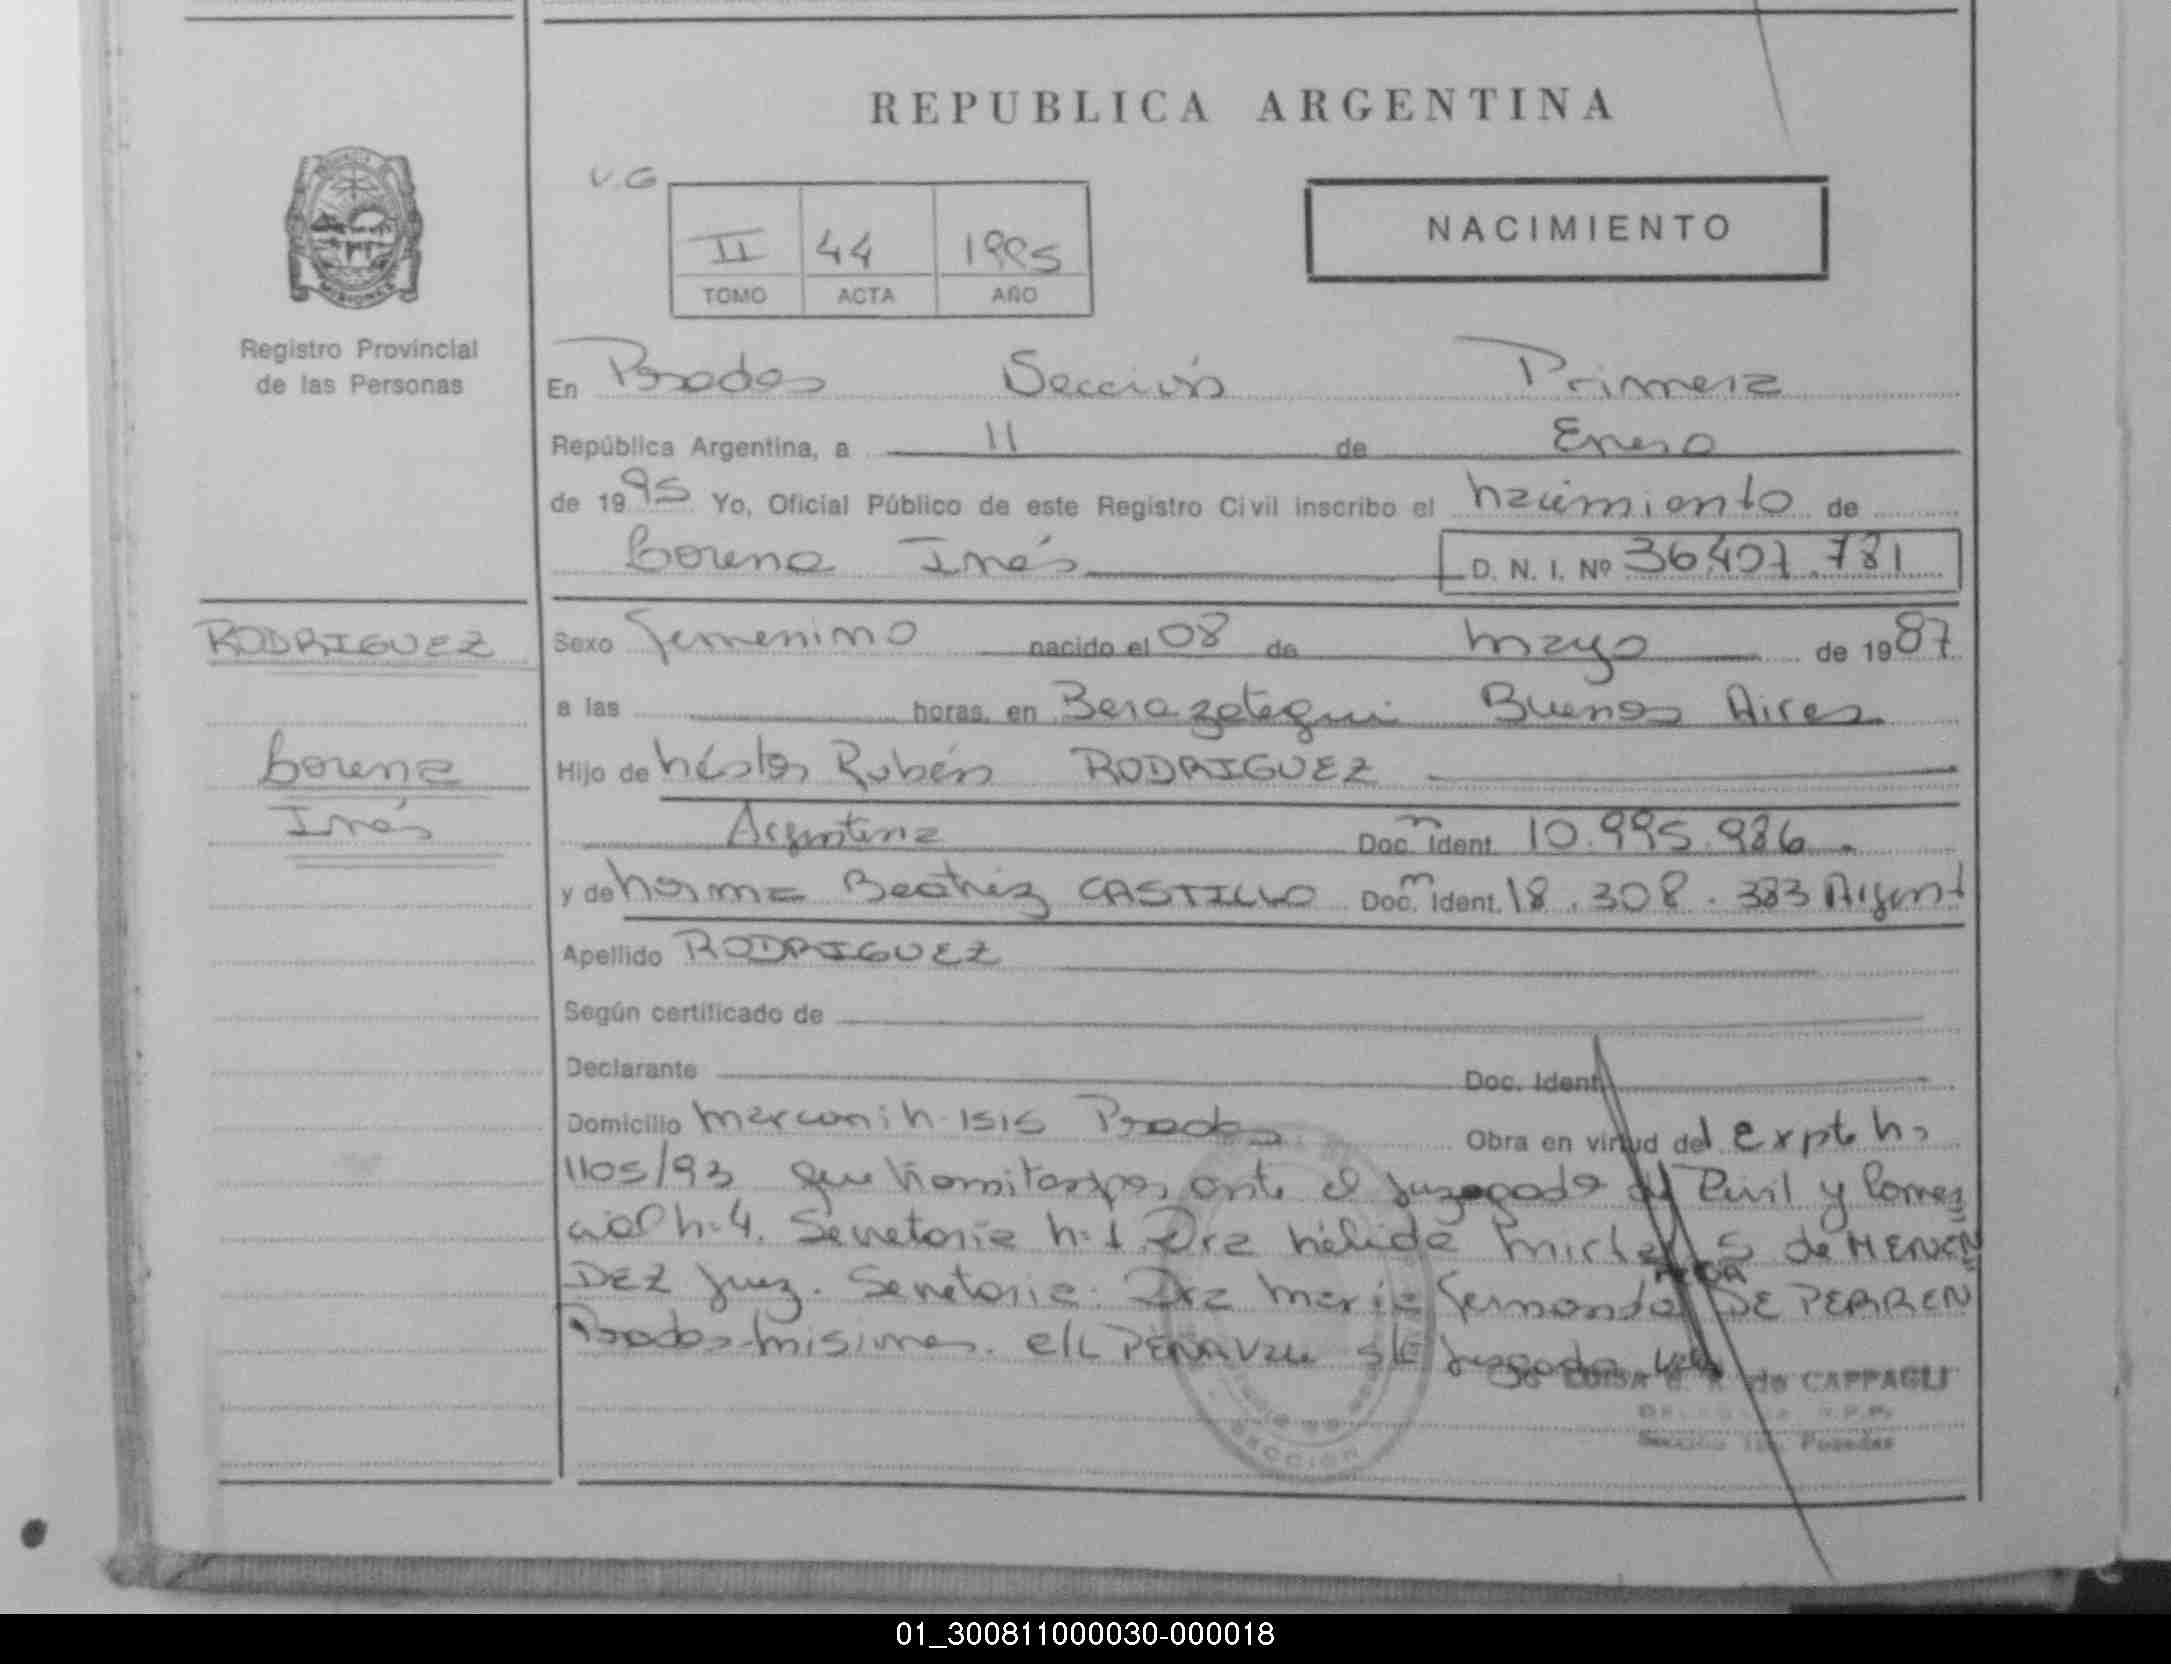 REPUBLICA ARGENTINA
V.G
NACIMIENTO
II 44 1995
TOMO ACTA AÑO
MISIONES
Registro Provincial
de las Personas
En Posadas Sección Primera
República Argentina, a 11 de Enero
de 1995 Yo, Oficial Público de este Registro Civil inscribo el nacimiento de
Lorena Inés D. N. I. Nº 36.407.781
RODRIGUEZ
Lorena
Inés
Sexo femenino nacido el 08 de mayo de 1987
a las horas, en Berazategui Buenos Aires
Hijo de Néstor Rubén RODRIGUEZ
Argentina Doc. Ident. 10.995.986
y de Norma Beatriz CASTILLO Doc. Ident. 18.308.383 Argent
Apellido RODRIGUEZ
Según certificado de
Declarante Doc. Ident.
Domicilio Marconi N. 1515 Posadas Obra en virtud del expte N.
1105/93 que ante el Juzgado Civil y Comer
cial N.4. Secretaria N.1 Dra Nélida S de MENEN
DEZ Juez. Secretaria. Dra María Fernanda DE PERREN
Posadas-Misiones. juzgado
LUISA de CAPPAGLI
R.P.P.
Sección 1ra, Posadas
SECCION
01_300811000030-000018